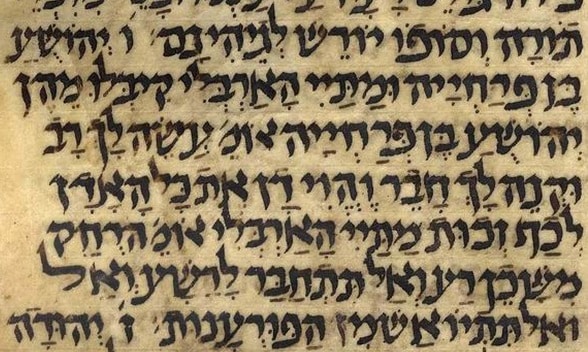 תורה וסופו יורש לגיהינם ו יהושע
בן פרחייה ומתיי הארבלי קיבלו מהן
יהושע בן פרחייה אומ׳ עשה לך רב
וקנה לך חבר והוי דן את כל האדן
לכף זכות מתיי הארבלי אומ׳ הרחק
משכן רע ואל תתחבר לרשע ואל
ואל תתיואש מן הפורענות ז יהודה